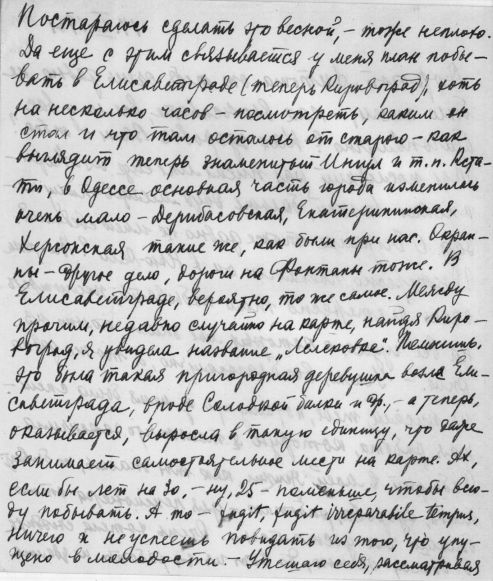 Постараюсь сделать это весной, – тоже неплохо.
Да еще с этим связывается у меня план побы-
вать в Елисаветграде (теперь Кировоград), хоть
на несколько часов – посмотреть, каким он
стал и что там осталось от старого – как
выглядит теперь знаменитый Ингул и т. п. Кста-
ти, в Одессе основная часть города изменилась
очень мало – Дерибасовская, Екатерининская,
Херсонская такие же, как были при нас. Окраи-
ны – другое дело, дороги на Фонтаны тоже. В
Елисаветграде, вероятно, то же самое. Между
прочим, недавно случайно на карте, найдя Киро-
воград, я увидела название „Лелековка“. Помнишь,
это была такая пригородная деревушка возле Ели-
саветграда, вроде Солодкой балки и др., – а теперь,
оказывается, выросла в такую единицу, что даже
занимает самостоятельное место на карте. Ах,
если бы лет на 30, – ну, 25 – поменьше, чтобы всю-
ду побывать. А то – fugit, fugit irreparabile tempus,
ничего не успеешь повидать из того, что упу-
щено в молодости. – Утешаю себя, рассматривая